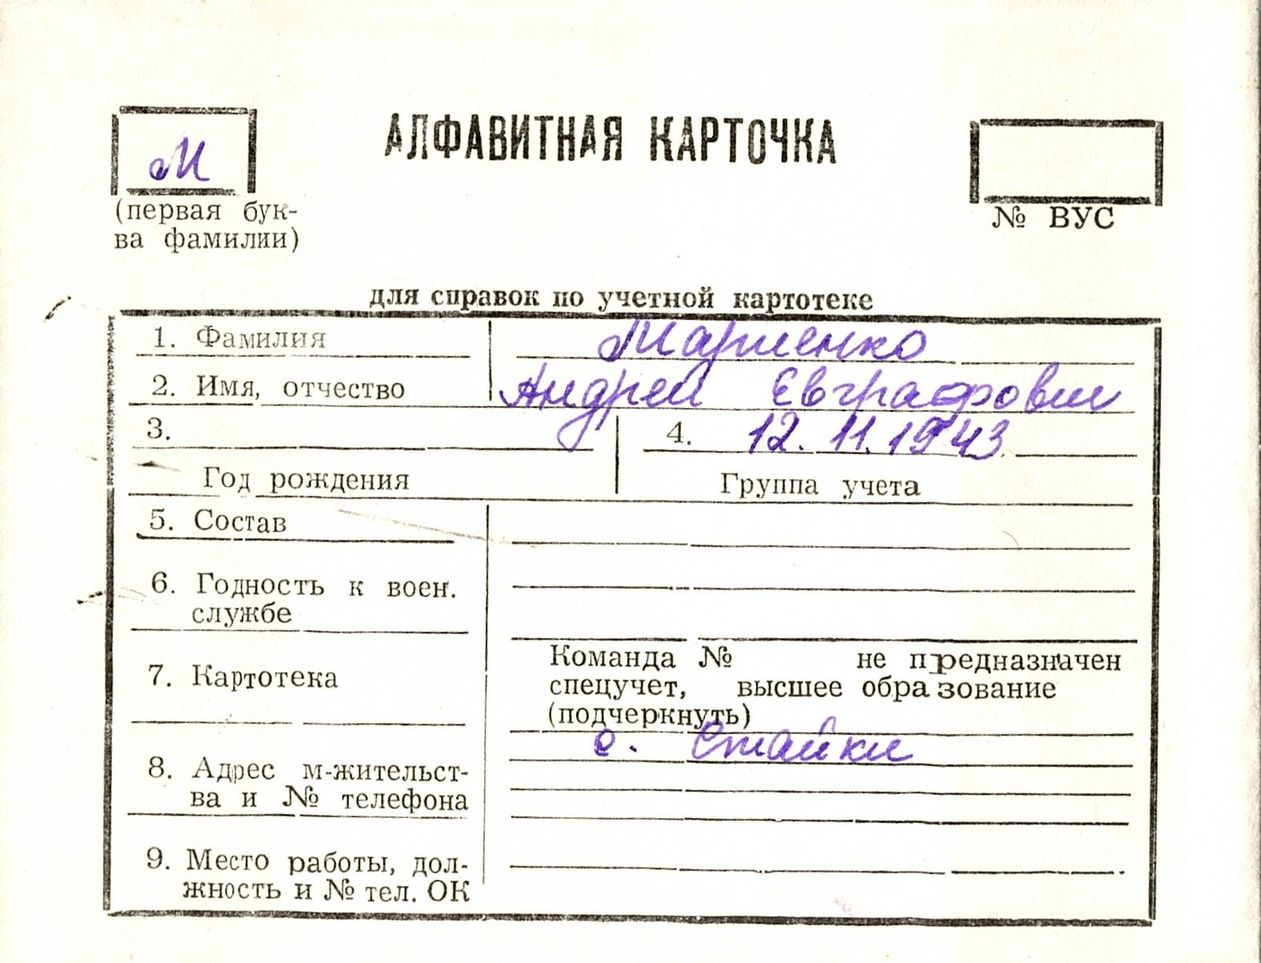 М
АЛФАВИТНАЯ КАРТОЧКА
(первая бук-
ва фамилии)
№ ВУС
для справок по учетной картотеке
1. Фамилия
2. Имя, отчество Андрей Евграфович
3.
4. 12.11.1943
Год рождения Группа учета
5. Состав
6. Годность к воен.
службе
Команда № не предназначен
спецучет, высшее образование
(подчеркнуть)
7. Картотека
с. Стайки
8. Адрес м-жительст-
ва и № телефона
9. Место работы, дол-
жность и № тел. ОК